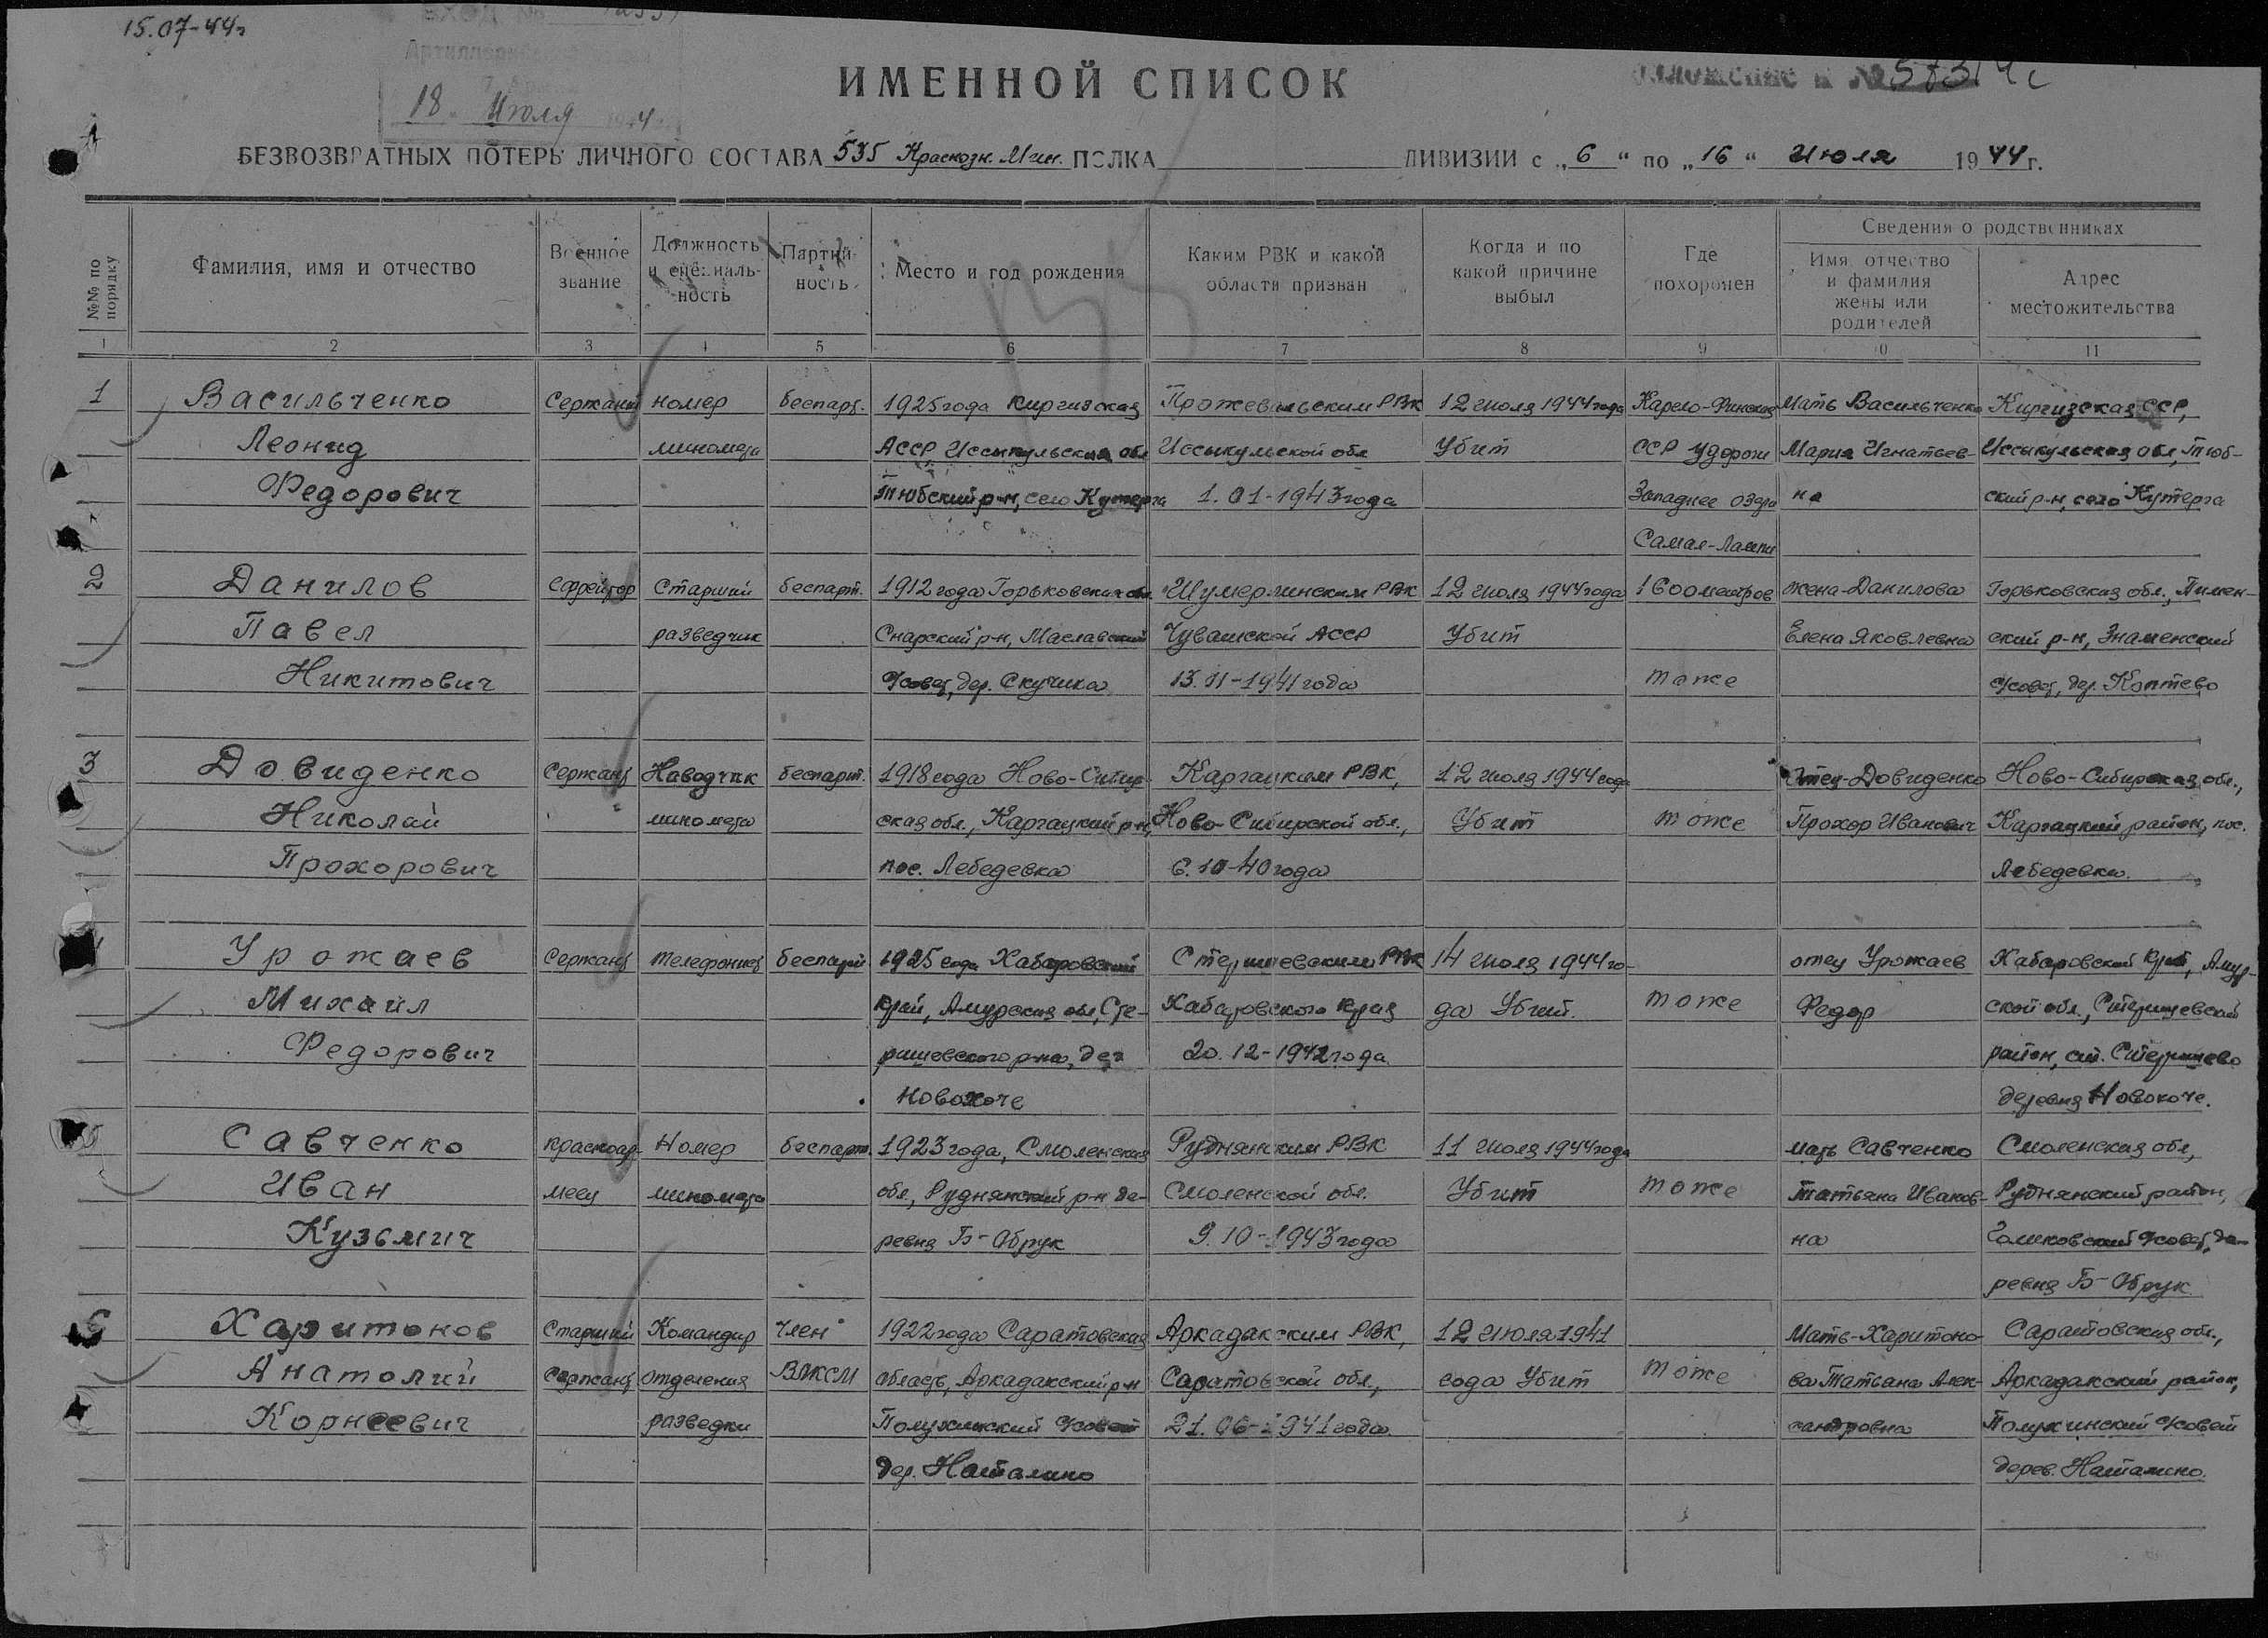 15.07-44г
18 Июля 1944
ИМЕННОЙ СПИСОК
57314с
БЕЗВОЗВРАТНЫХ ПОТЕРЬ ЛИЧНОГО СОСТАВА 535 Краснозн. Мин. ПОЛКА ДИВИЗИИ с „6“ по „16“ Июля 1944 г.
№№ по порядку
Фамилия, имя и отчество
Военное звание
Должность и специаль-ность
Партий-ность
Место и год рождения
Каким РВК и какой области призван
Когда и по какой причине выбыл
Где похоронен
Сведения о родственниках
Имя, отчество и фамилия жены или родителей
Адрес местожительства
1 2 3 4 5 6 7 8 9 10 11
1 Васильченко Сержант номер беспарт. 1925 года Киргизская Пржевальским РВК 12 июля 1944 года Карело-Финская Мать Васильченко Киргизская ССР,
Леонид миномета АССР Иссыкульская обл Иссыкульской обл Убит ССР у дороги Мария Игнатьев- Иссыкульская обл, Тюб-
Федорович Тюбский р-н, село Кутерга 1.01-1943 года Западнее озера на ский р-н, село Кутерга
2 Данилов Ефрейтор Старший беспарт. 1912 года Горьковская обл. Шумерлинским РВК 12 июля 1944 года 1600 метров жена-Данилова Горьковская обл.,
Павел разведчик р-н, Чувашской АССР Убит Елена Яковлевна ский р-н, Знаменский
Никитович с/совет, дер. 13.11-1941 года тоже с/совет, дер. Коптево
3 Довиденко Сержант Наводчик беспарт. 1918 года Ново-Сибир- Каргацким РВК, 12 июля 1944 года отец-Довиденко Ново-Сибирская обл.,
Николай миномета ская обл., Каргацкий р-н, Ново-Сибирской обл., Убит тоже Прохор Иванович Каргацкий район, пос.
Прохорович пос. Лебедевка 6.10-40 года Лебедевка.
Урожаев Сержант телефонист беспарт 1925 года Хабаровский РВК 14 июля 1944 го- отец Урожаев Хабаровской край, Амур-
Михаил край, Амурская обл, Сте- Хабаровского края да Убит. тоже Федор ской обл.,
Федорович р-на, дер 20.12-1942 года район, ст.
деревня
5 Савченко красноар- Номер беспарт. 1923 года, Смоленская Руднянским РВК 11 июля 1944 года мать Савченко Смоленская обл,
Иван меец миномета обл, Руднянский р-н де- Смоленской обл. Убит тоже Татьяна Иванов- Руднянский район,
Кузьмич ревня Б-Обрук 9.10-1943 года на с/совет, де-
ревня Б-Обрук
6 Харитонов Старший Командир Член 1922 года Саратовская Аркадакским РВК, 12 июля 1941 Мать-Харитоно- Саратовская обл.,
Анатолий Сержант отделения ВЛКСМ область, Аркадакский р-н Саратовской обл., года Убит тоже ва Татьяна Алек- Аркадакский район,
Корнеевич разведки с/совет 21.06-1941 года сандровна с/совет
дер. Наталино дерев. Наталино.